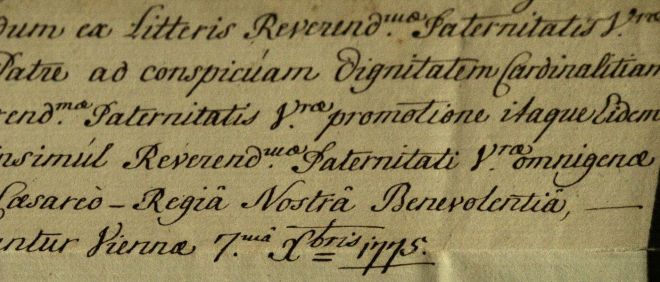 dum ex Litteris Reverend.mæ Paternitatis V.ræ
Patre ad conspicúam Dignitatem Cardinalitiam
rend.mæ Paternitatis V.ræ promotione itaque Eidem
insimúl Reverend.mæ Paternitati V.ræ omnigenæ
Cæsareò-Regiâ Nostrâ Benevolentiâ, —
antur Viennæ 7.mâ Xbris 1775.